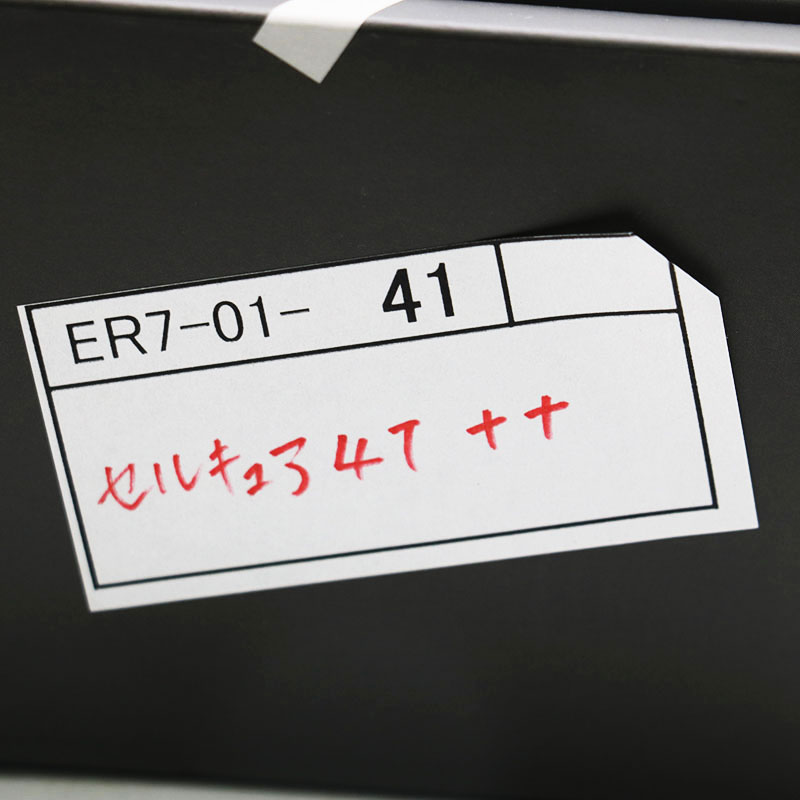 ER7-01- 41
セルキュア4T ++